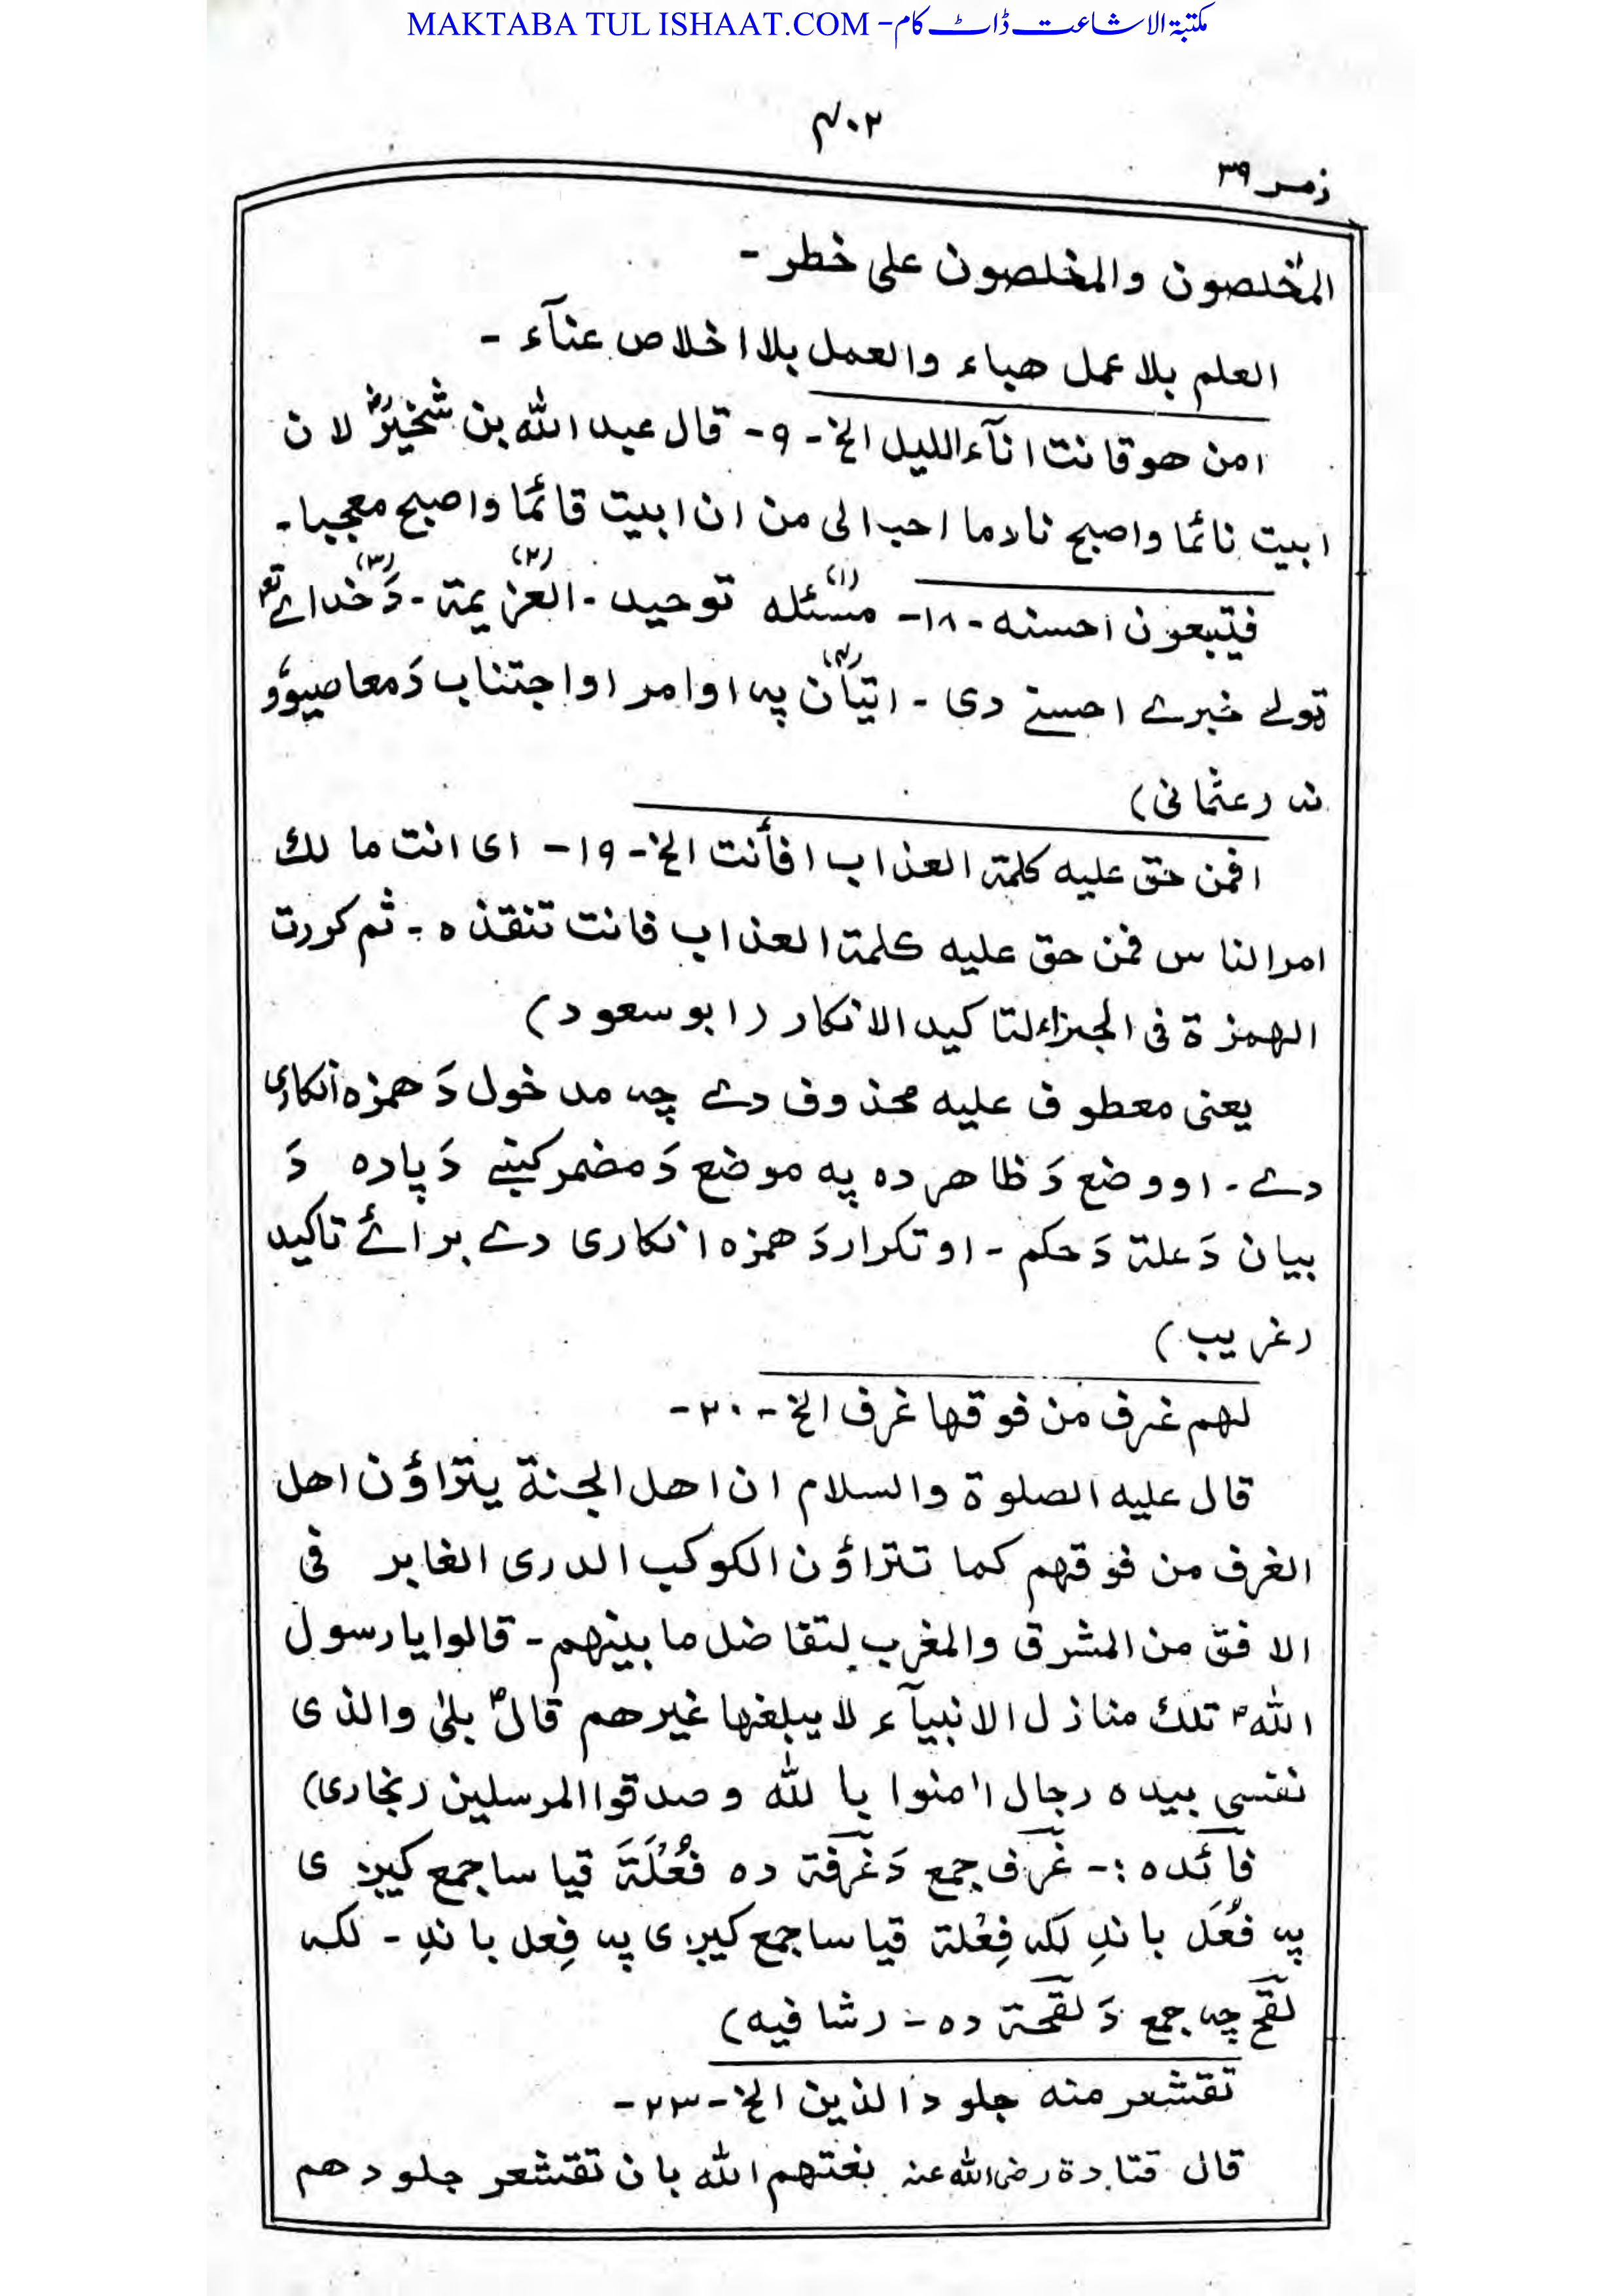 MAKTABA TUL ISHAAT.COM - مکتبۃ الاشاعت ڈاٹ کام
۴۰۲
زمر ۳۹
المُخلصون والمخلصون علی خطر -
العلم بلا عمل هباء والعمل بلا اخلاص عنآء -
امن هو قانت انآء الليل الخ - ۹ - قال عبد الله بن شخیرؓ لان
ابیت نائما واصبح نادما احب الی من ان ابیت قائما واصبح معجبا -
فیتبعون احسنه - ۱۸ - (۱) مسئله توحید - (۲) العزیمة - (۳) دَ خدائے تعہ
ټولے خبرے احسنے دی - (۴) اتیان په اوامر او اجتناب دَ معاصیوؤ
نه (عثمانی)
افمن حق علیه کلمة العذاب افأنت الخ - ۱۹ - ای انت مالك
امر الناس فمن حق علیه کلمة العذاب فانت تنقذه - ثم کررت
الهمزة فی الجزاء لتاکید الانکار (ابو سعود)
یعنی معطوف علیه محذوف دے چه مدخول دَ همزه انکاری
دے - او وضع دَ ظاهر ده په موضع دَ مضمر کښے دَ پاره دَ
بیان دَ علة دَ حکم - او تکرار دَ همزه انکاری دے برائے تاکید
(غریب)
لهم غرف من فوقها غرف الخ - ۲۰ -
قال علیه الصلوة والسلام ان اهل الجنة یتراؤن اهل
الغرف من فوقهم کما تتراؤن الکوکب الدری الغابر فی
الافق من المشرق والمغرب لتفاضل ما بینهم - قالوا یا رسول
اللهؐ تلك منازل الانبیآء لا یبلغها غیرهم قالؐ بلیٰ والذی
نفسی بیده رجال اٰمنوا بالله وصدقوا المرسلین (بخاری)
فآئده :- غُرَف جمع دَ غُرفة ده فُعُلَةَ قیاسا جمع کیږی
په فُعَل باندِ لکه فِعْلة قیاسا جمع کیږی په فِعل باندِ - لکه
لقح چه جمع دَ لقحة ده - (شافیه)
تقشعر منه جلود الذین الخ - ۲۳ -
قال قتادة رضی الله عنه نعتهم الله بان تقشعر جلودهم